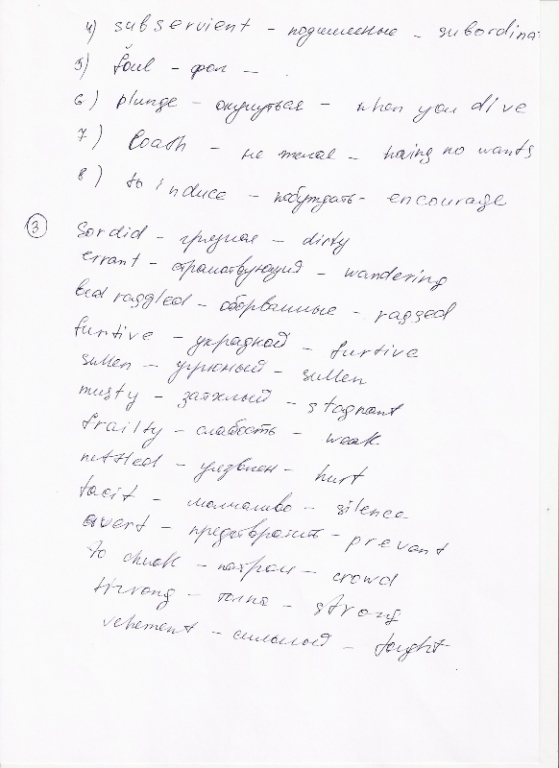 4) subservient - подчиненные - subordina
5) foul - фол -
6) plunge - окунуться - when you dive
7) loath - не желая - having no wants
8) to induce - побуждать - encourage
③ Sordid - грязная - dirty
errant - странствующий - wandering
bedraggled - оборванные - ragged
furtive - украдкой - furtive
sullen - угрюмый - sullen
musty - затхлый - stagnant
frailty - слабость - weak
nettled - уязвлен - hurt
tacit - молчаливо - silence
avert - предотвратить - prevant
to chuck - - crowd
throng - толпа - strong
vehement - сильный -